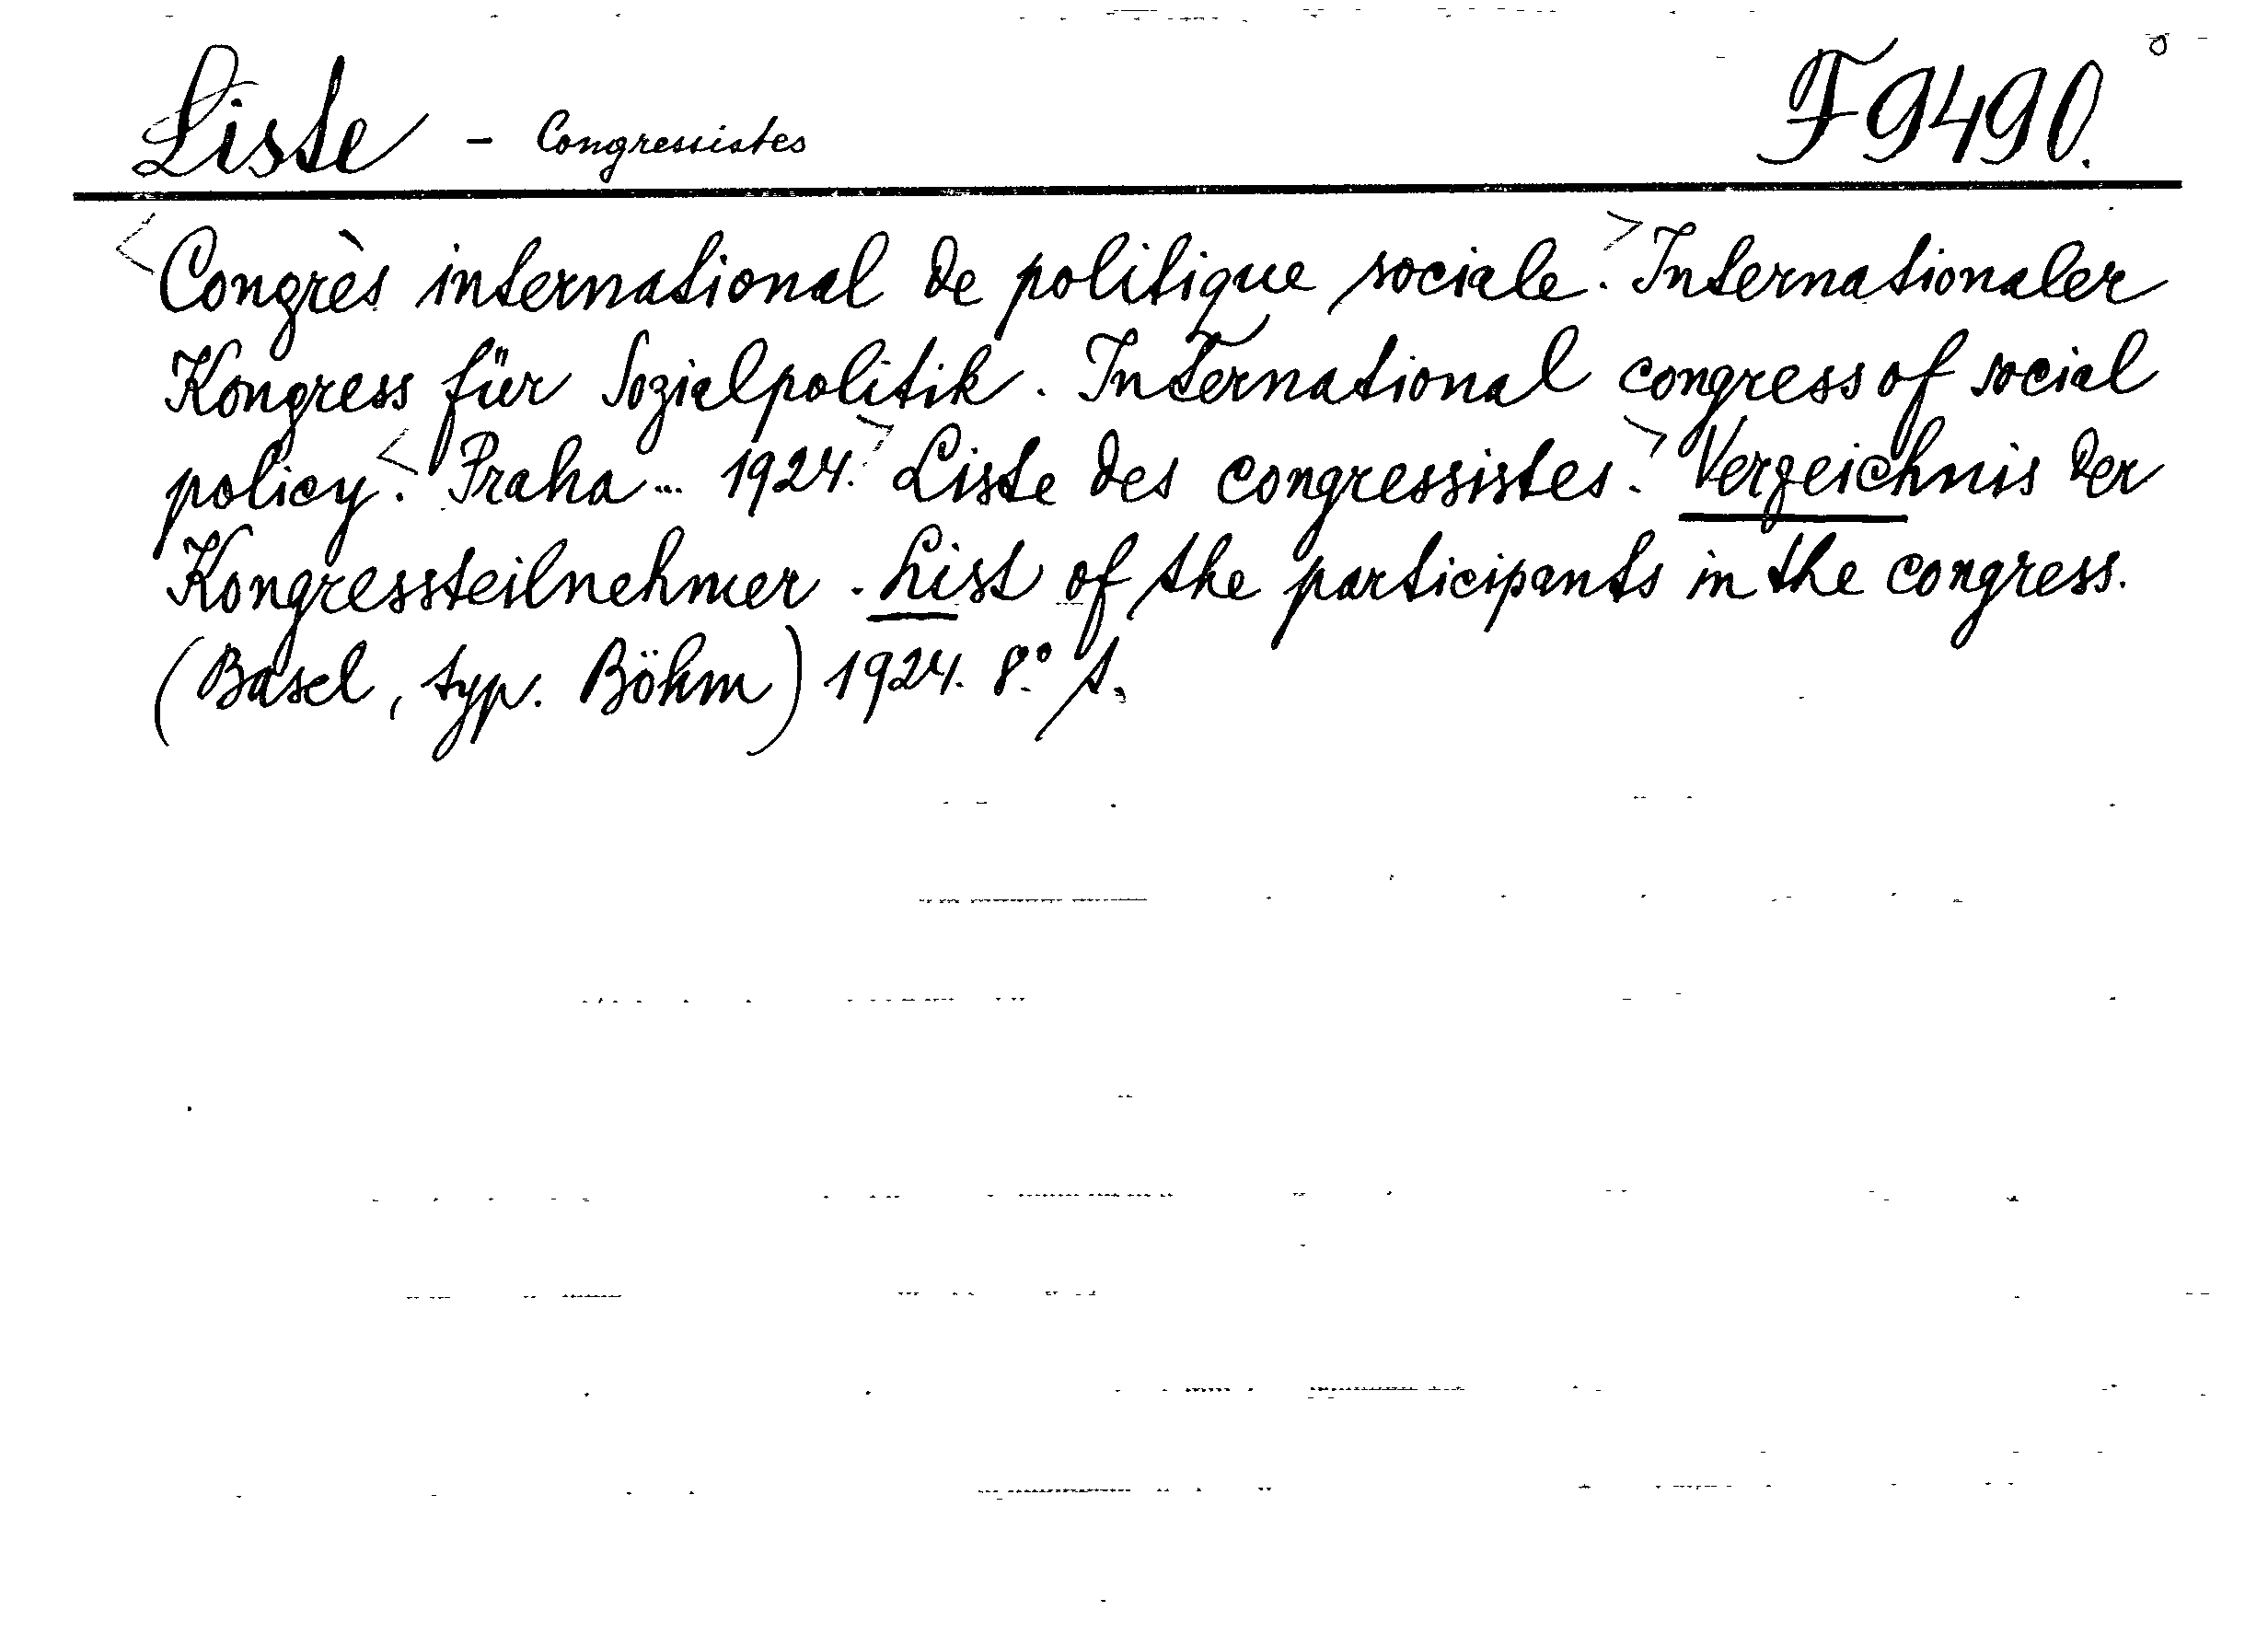 Liste - Congressistes F 9490.
<Congrès international de politique sociale.> Internationaler
Kongress für Sozialpolitik. International congress of social
policy. <Praha ... 1924.> Liste des congressistes.> Verzeichnis der
Kongressteilnehmer. List of the participants in the congress.
(Basel, typ. Böhm) 1924. 8° s.